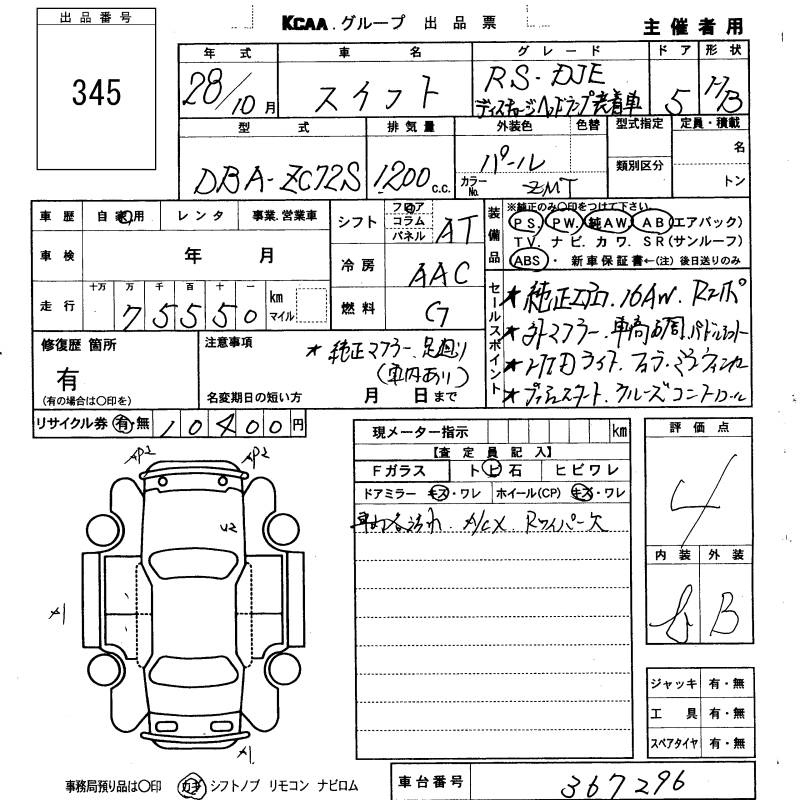 出品番号
345
KCAA.グループ 出品票
主催者用
年式 車名 グレード ドア 形状
28/10月 スイフト RS-DJE 5 HB
ディスチャージヘッドランプ装着車
型式 排気量 外装色 色替 型式指定 定員・積載
DBA-ZC72S 1200c.c. パール 名
カラーNo. ZMT 類別区分 トン
車歴 自家用 レンタ 事業.営業車
シフト フロア コラム パネル AT
車検 年 月
冷房 AAC
走行 十万 万 千 百 十 一 km マイル
75550
燃料 G
装備品
※純正のみ〇印をつけて下さい。
PS. PW. 純AW. AB(エアバック)
TV. ナビ. カワ. SR(サンルーフ)
ABS・ 新車保証書←(注)後日送りのみ
セールスポイント
★純正エアロ.16AW.Rスポ
修復歴 箇所
有
(有の場合は〇印を)
注意事項
★純正マフラー.足廻り
(車内あり)
名変期日の短い方 月 日まで
★プッシュスタート.クルーズコントロール
リサイクル券 有・無 10400円
現メーター指示 km
【査定員記入】
Fガラス トビ石 ヒビワレ
ドアミラー キズ・ワレ ホイール(CP) キズ・ワレ
車内汚れ. A/C×. Rワイパー欠
評価点
4
内装 外装
B
AP2 AP2
U2
A1
A1
ジャッキ 有・無
工具 有・無
スペアタイヤ 有・無
事務局預り品は〇印 カギ シフトノブ リモコン ナビロム
車台番号 367296